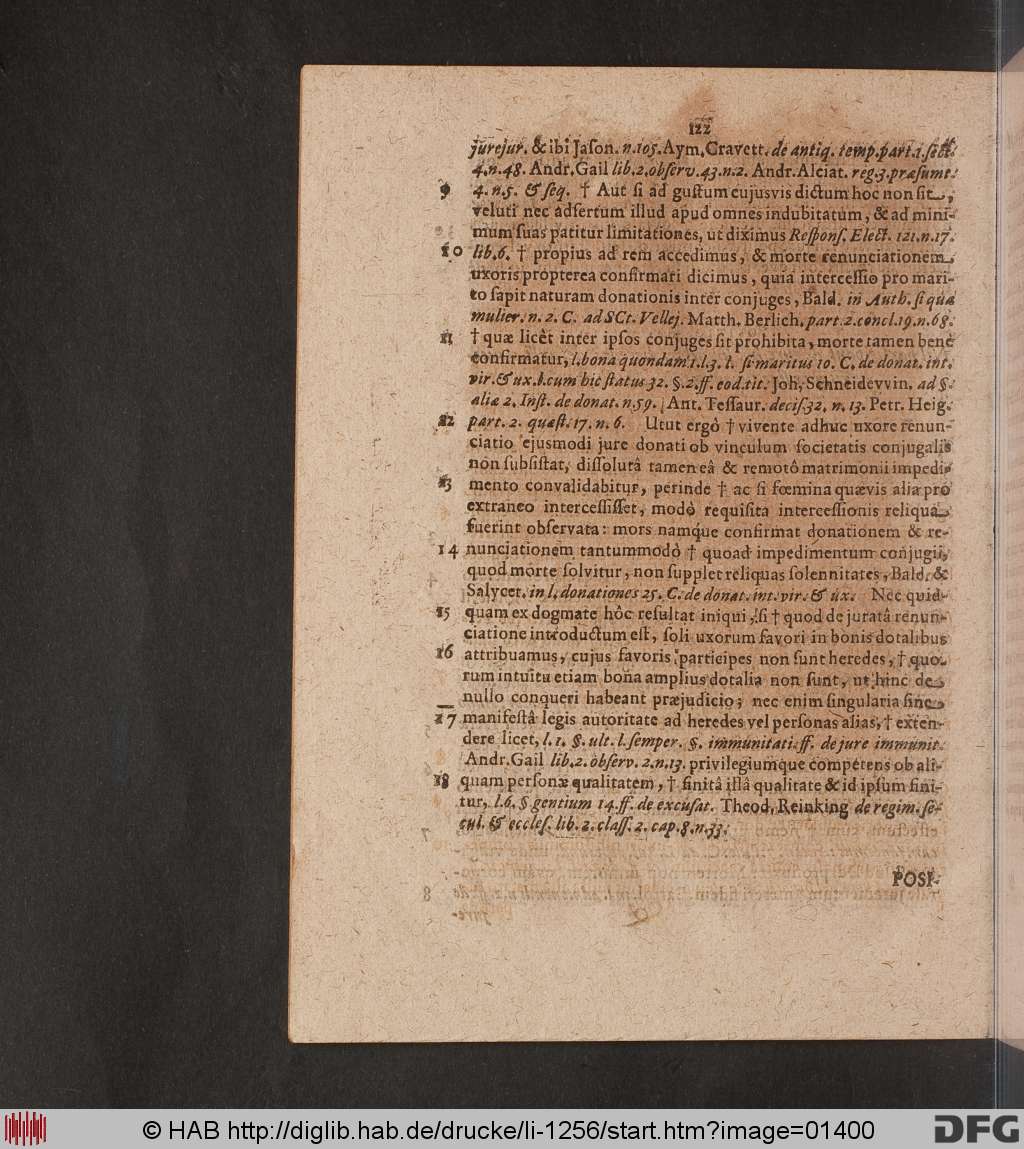 122
jurejur. & ibi Jaſon. n.105. Aym. Cravett. de antiq. temp. part. 1. ſect.
4. n. 48. Andr. Gail lib. 2. obſerv. 43. n. 2. Andr. Alciat. reg. 3. præſumt.
9 4. n. 5. & ſeq. † Aut ſi ad guſtum cujusvis dictum hoc non ſit,
veluti nec adſertum illud apud omnes indubitatum, & ad mini-
mum ſuas patitur limitationes, ut diximus Reſponſ. Elect. 121. n. 17.
10 lib. 6. † propius ad rem accedimus, & morte renunciationem
uxoris propterea confirmari dicimus, quia interceſſio pro mari-
to ſapit naturam donationis inter conjuges, Bald. in Auth. ſi qua
mulier. n. 2. C. ad SCt. Vellej. Matth. Berlich. part. 2. concl. 19. n. 68.
11 † quæ licèt inter ipſos conjuges ſit prohibita, morte tamen benè
confirmatur, l. bona quondam 1. l. 3. l. ſi maritus 10. C. de donat. int.
vir. & ux. l. cum hic ſtatus 32. §. 2. ff. eod. tit. Joh. Schneidevvin. ad §.
aliæ 2. Inſt. de donat. n. 59. Ant. Teſſaur. deciſ. 32. n. 13. Petr. Heig.
12 part. 2. quæſt. 17. n. 6. Utut ergò † vivente adhuc uxore renun-
ciatio ejusmodi jure donati ob vinculum ſocietatis conjugalis
non ſubſiſtat, diſſolutâ tamen eâ & remotô matrimonii impedi-
13 mento convalidabitur, perinde † ac ſi fœmina quævis alia pro
extraneo interceſſiſſet, modò requiſita interceſſionis reliqua
fuerint obſervata: mors namq́ue confirmat donationem & re-
14 nunciationem tantummodò † quoad impedimentum conjugii,
quod morte ſolvitur, non ſupplet reliquas ſolennitates, Bald. &
Salycet. in l. donationes 25. C. de donat. int. vir. & ux. Nec quid-
15 quam ex dogmate hôc reſultat iniqui, ſi † quod de juratâ renun-
ciatione introductum eſt, ſoli uxorum favori in bonis dotalibus
16 attribuamus, cujus favoris participes non ſunt heredes, † quo-
rum intuitu etiam bona amplius dotalia non ſunt, ut hinc de
nullo conqueri habeant præjudicio; nec enim ſingularia ſine
17 manifeſtâ legis autoritate ad heredes vel perſonas alias, † exten-
dere licet, l. 1. §. ult. l. ſemper. §. immunitati. ff. de jure immunit.
Andr. Gail lib. 2. obſerv. 2. n. 13. privilegiumque competens ob ali-
18 quam perſonæ qualitatem, † finitâ illâ qualitate & id ipſum fini-
tur, l. 6. § gentium 14. ff. de excuſat. Theod. Reinking de regim. ſe-
cul. & eccleſ. lib. 2. claſſ. 2. cap. 8. n. 33.
POSI-
© HAB http://diglib.hab.de/drucke/li-1256/start.htm?image=01400
DFG